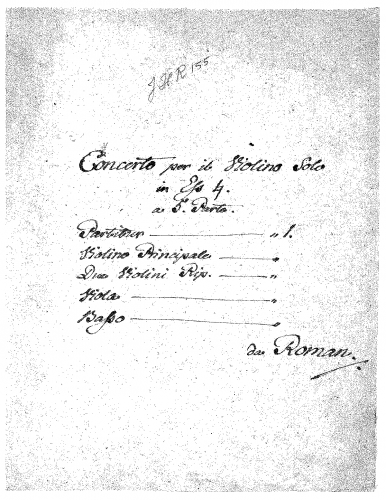 JHR 155
Concerto per il Violino Solo
in Eſs 4.
a 5. Parte.
Partitur „ 1.
Violino Principale „
Due Violini Rip. „
Viola „
Baſso „
da Roman.